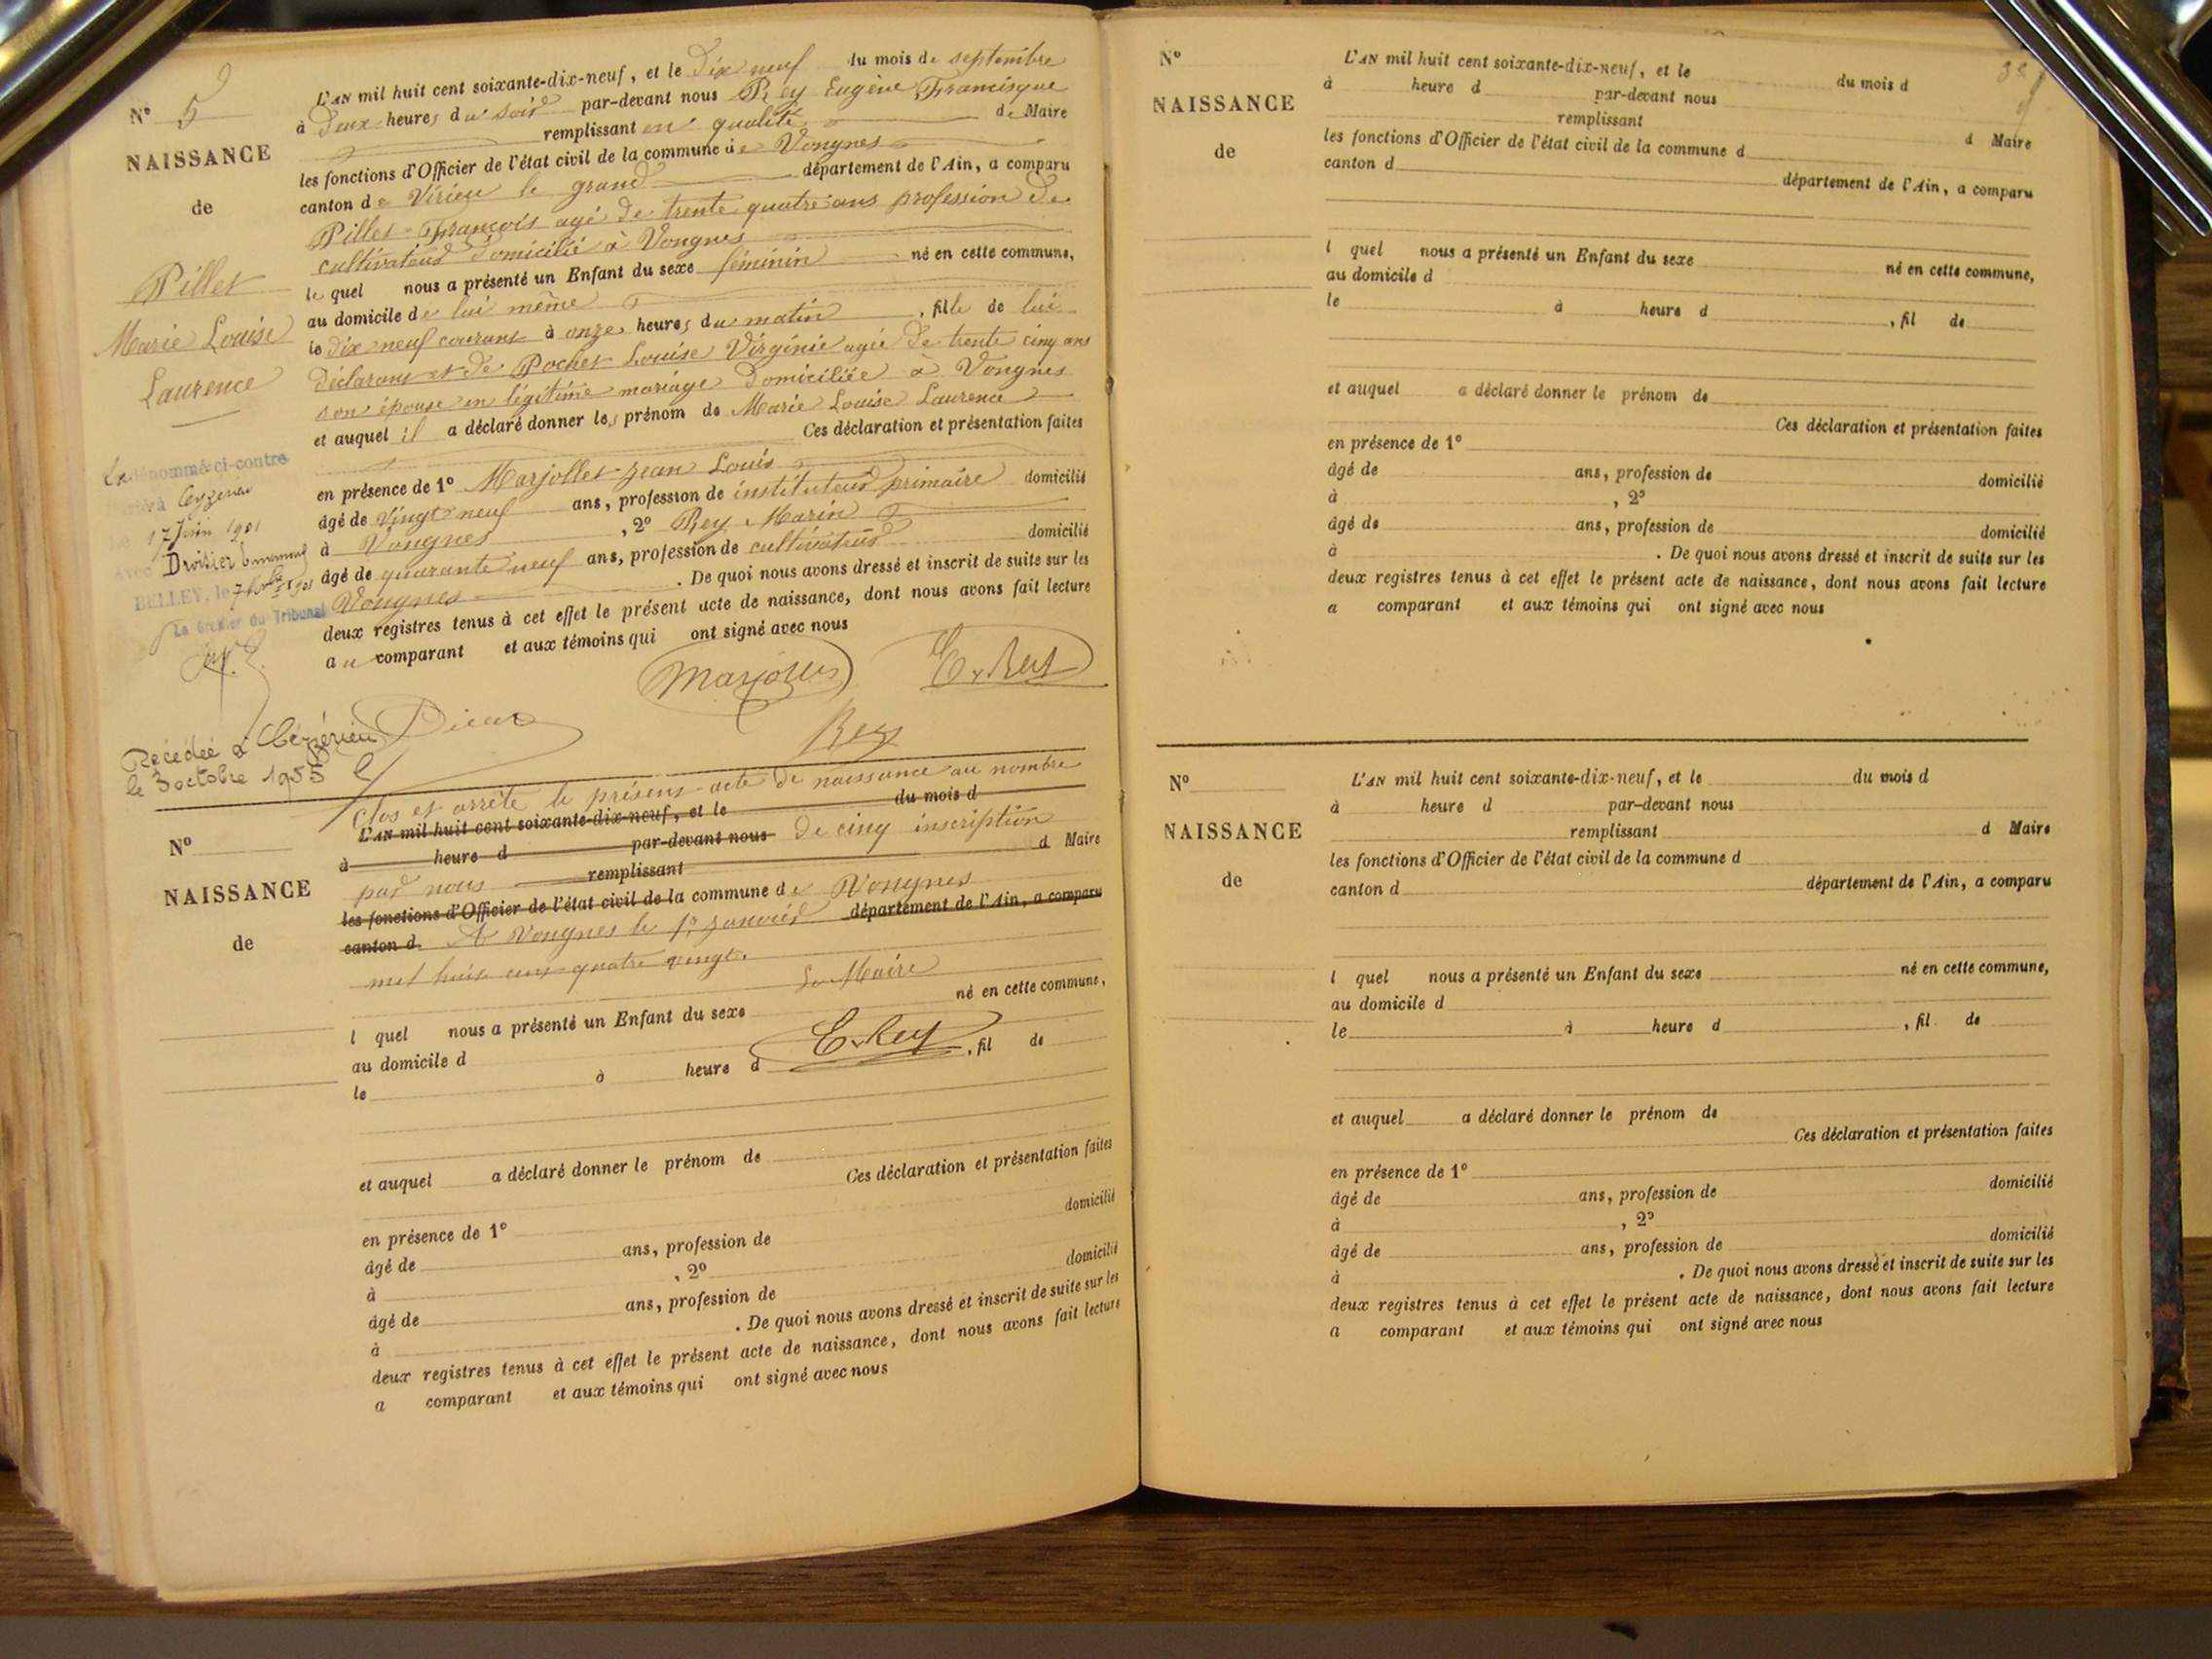 N° 5
NAISSANCE
de
Pillet
Marie Louise
Laurence
L'AN mil huit cent soixante-dix-neuf, et le dix neuf du mois de septembre
à deux heures du soir par-devant nous Rey Eugène Francisque
remplissant en qualité de Maire
les fonctions d'Officier de l'état civil de la commune de Vongnes
canton de Virieu le grand département de l'Ain, a comparu
Pillet François agé de trente quatre ans profession de
cultivateur domicilié à Vongnes
le quel nous a présenté un Enfant du sexe féminin né en cette commune,
au domicile de lui même
le dix neuf courant à onze heures du matin, fille de lui
déclarant et de Pochet Louise Virginie agée de trente cinq ans
son épouse en légitime mariage domiciliée à Vongnes
et auquel il a déclaré donner les prénom de Marie Louise Laurence
Ces déclaration et présentation faites
en présence de 1° Marjollet Jean Louis
âgé de vingt neuf ans, profession de instituteur primaire domicilié
à Vongnes, 2° Rey Marin
âgé de quarante neuf ans, profession de cultivateur domicilié
Vongnes. De quoi nous avons dressé et inscrit de suite sur les
deux registres tenus à cet effet le présent acte de naissance, dont nous avons fait lecture
au comparant et aux témoins qui ont signé avec nous
La dénommé ci-contre
à Ceyzérieu
Le 17 Juin 1901
avec Droisier
BELLEY, le 7 1901
Le Greffier du Tribunal
Marjollet
E. Rey
Rey
Décédée à Ceyzérieu
le 3 octobre 1955
Clos et arrêté le présent acte de naissance au nombre
L'AN mil huit cent soixante-dix-neuf, et le du mois d
de cinq inscription
à heure d par-devant nous
par nous remplissant d Maire
les fonctions d'Officier de l'état civil de la commune de Vongnes
canton d département de l'Ain, a comparu
A Vongnes le 1er janvier
mil huit cent quatre vingt.
Le Maire
E. Rey
N°
NAISSANCE
de
l quel nous a présenté un Enfant du sexe né en cette commune,
au domicile d
le à heure d , fil de
et auquel a déclaré donner le prénom de
Ces déclaration et présentation faites
en présence de 1°
âgé de ans, profession de domicilié
à , 2°
âgé de ans, profession de domicilié
à . De quoi nous avons dressé et inscrit de suite sur les
deux registres tenus à cet effet le présent acte de naissance, dont nous avons fait lecture
a comparant et aux témoins qui ont signé avec nous
N°
NAISSANCE
de
L'AN mil huit cent soixante-dix-neuf, et le du mois d
à heure d par-devant nous
remplissant d Maire
les fonctions d'Officier de l'état civil de la commune d
canton d département de l'Ain, a comparu
l quel nous a présenté un Enfant du sexe né en cette commune,
au domicile d
le à heure d , fil de
et auquel a déclaré donner le prénom de
Ces déclaration et présentation faites
en présence de 1°
âgé de ans, profession de domicilié
à , 2°
âgé de ans, profession de domicilié
à . De quoi nous avons dressé et inscrit de suite sur les
deux registres tenus à cet effet le présent acte de naissance, dont nous avons fait lecture
a comparant et aux témoins qui ont signé avec nous
N°
NAISSANCE
de
L'AN mil huit cent soixante-dix-neuf, et le du mois d
à heure d par-devant nous
remplissant d Maire
les fonctions d'Officier de l'état civil de la commune d
canton d département de l'Ain, a comparu
l quel nous a présenté un Enfant du sexe né en cette commune,
au domicile d
le à heure d , fil de
et auquel a déclaré donner le prénom de
Ces déclaration et présentation faites
en présence de 1°
âgé de ans, profession de domicilié
à , 2°
âgé de ans, profession de domicilié
à . De quoi nous avons dressé et inscrit de suite sur les
deux registres tenus à cet effet le présent acte de naissance, dont nous avons fait lecture
a comparant et aux témoins qui ont signé avec nous